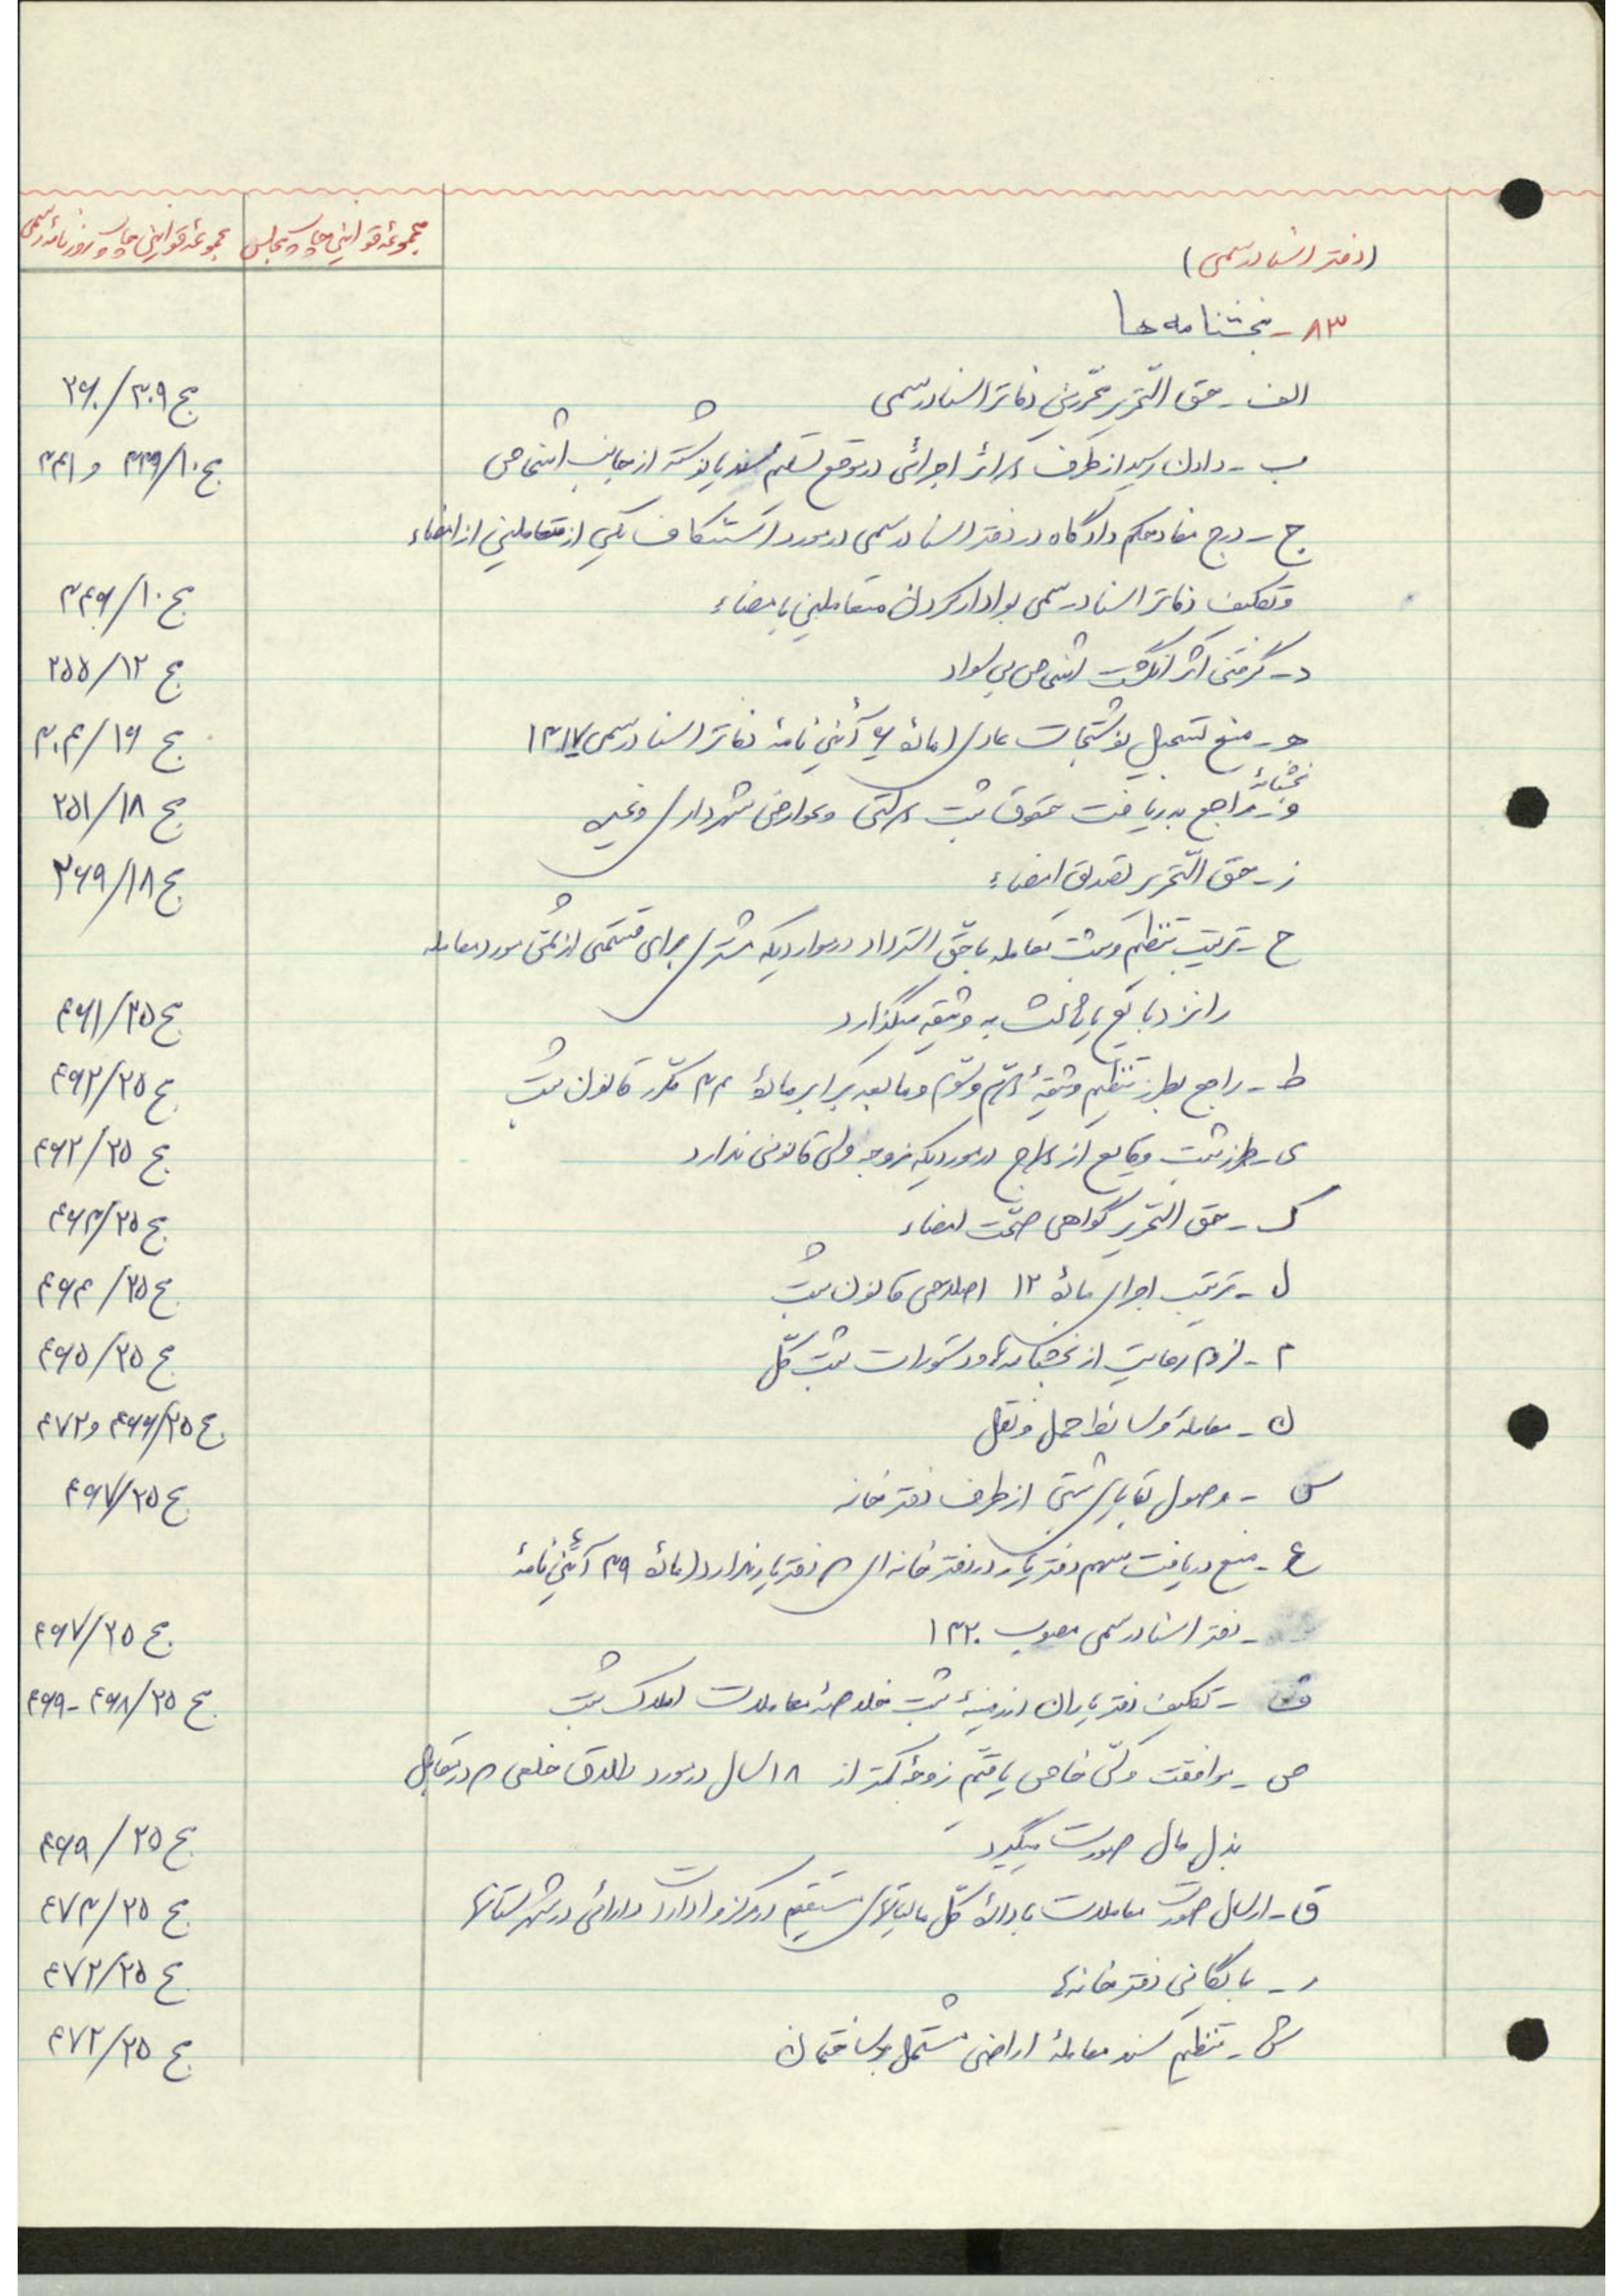 (دفتر اسناد رسمی)
مجموعهٔ قوانین چاپ مجلس
مجموعهٔ قوانین چاپ روزنامهٔ رسمی
۸۳ - بخشنامه ها
الف - حق التّحریر محرّرین دفاتر اسناد رسمی ج ۳۰۹/۲۶۰
ب - دادن رسید از طرف دوائر اجرائی در موقع تسلیم سند یا نوشته از جانب اشخاص ج ۱۰/۳۳۹ و ۳۴۱
ج - درج مفاد حکم دادگاه در دفتر اسناد رسمی در مورد استنکاف یکی از متعاملین از امضاء
و تکلیف دفاتر اسناد رسمی بوادار کردن متعاملین بامضاء ج ۱۰/۳۴۶
د - گرفتن اثر انگشت اشخاص بی سواد ج ۱۲/۲۵۵
هـ - منع تسجیل نوشتجات عادی (مادهٔ ۶ آئین نامهٔ دفاتر اسناد رسمی ۱۳۱۷ ج ۱۶/۳۰۴
بخشنامهٔ
و - راجع بدریافت حقوق ثبت دولتی و عوارض شهرداری و غیره ج ۱۸/۲۵۱
ز - حق التّحریر تصدیق امضاء ج ۱۸/۲۶۹
ح - ترتیب تنظیم و ثبت معامله با حقّ استرداد در مواردیکه مشتری برای قسمتی از ثمن مورد معامله
را نزد بایع یا ثالث به وثیقه میگذارد ج ۲۵/۴۶۱
ط - راجع بطرز تنظیم وثیقهٔ دوّم و سوّم و ما بعد برابر مادهٔ ۳۴ مکرّر قانون ثبت ج ۲۵/۴۶۲
ی - طرز ثبت وقایع ازدواج در موردیکه زوجه ولی قانونی ندارد ج ۲۵/۴۶۲
ک - حق التّحریر گواهی صحّت امضاء ج ۲۵/۴۶۳
ل - ترتیب اجرای مادهٔ ۱۲ اصلاحی قانون ثبت ج ۲۵/۴۶۴
م - لزوم رعایت از بخشنامه‌ها و دستورات ثبت کلّ ج ۲۵/۴۶۵
ن - معاملهٔ وسائط حمل و نقل ج ۲۵/۴۶۶ و ۴۷۲
س - وصول بقایای ثبتی از طرف دفترخانه ج ۲۵/۴۶۷
ع - منع دریافت سهم دفتریار در دفترخانه ای که دفتریار ندارد (مادهٔ ۳۹ آئین نامهٔ
- دفتر اسناد رسمی مصوب ۱۳۲۰ ج ۲۵/۴۶۷
ف - تکلیف دفتریاران در زمینهٔ ثبت خلاصهٔ معاملات املاک ثبت ج ۲۵/۴۶۸ - ۴۶۹
ص - موافقت وکیل خاص یا قیّم زوجهٔ کمتر از ۱۸ سال در مورد طلاق خلعی که در مقابل
بذل مال صورت میگیرد ج ۲۵/۴۶۹
ق - ارسال صورت معاملات بادارهٔ کلّ مالیاتهای مستقیم در مرکز و ادارات دارائی در شهرستانها ج ۲۵/۴۷۳
ر - بایگانی دفترخانه‌ها ج ۲۵/۴۷۲
ش - تنظیم سند معاملهٔ اراضی مشتمل بر ساختمان ج ۲۵/۴۷۲